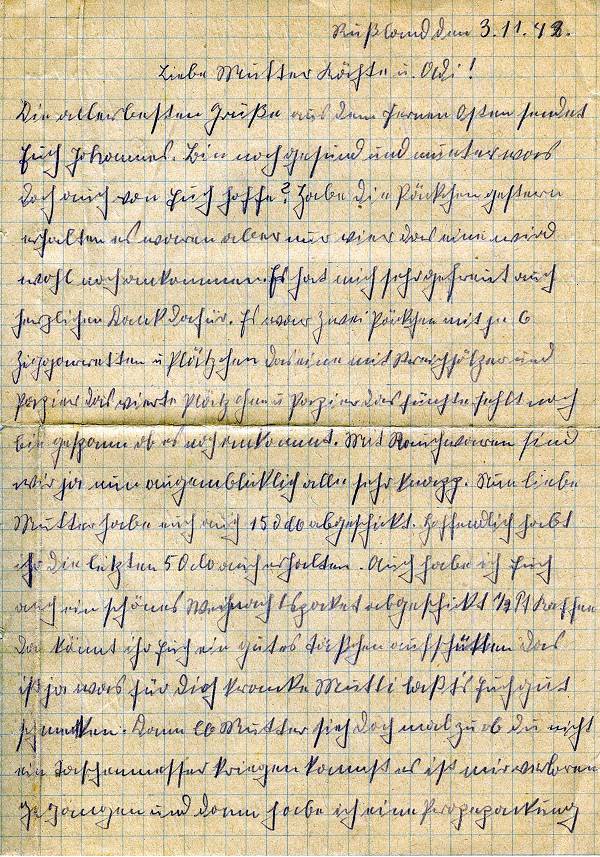 Rußland den 3.11.42.
Liebe Mutter Käthe u. Adi!
Die allerbesten Grüße aus dem fernen Osten sendet
Euch Johannes. Bin noch gesund und munter was
doch auch von Euch hoffe? Habe die Päckchen gestern
erhalten es waren aber nur vier das eine wird
wohl noch ankommen. Es hat mich sehr gefreut auch
herzlichen Dank dafür. Es war zwei Päckchen mit je 6
Zigparretten u Plätzchen das eine mit Streichhölzer und
Papier das vierte Plätzchen u Papier das fünfte fehlt noch
bin gespann ob es noch ankommt. Mit Rauchwaren sind
wir ja nun augenblicklich alle sehr knapp. Nun liebe
Mutter habe euch auch 150 abgeschickt. Hoffendlich habt
ihr die letzten 50 auch erhalten. Auch habe ich Euch
auch ein schönes Weihnachtspaket abgeschickt 1/2 Pf Kaffee
Da könnt ihr Euch ein gutes Täßchen aufschütten das
ist ja was für Dich kranke Mutti laßt's Euch gut
schmekken. Dann lb Mutter sieh doch mal zu ob du nicht
ein Taschenmesser kriegen kannst es ist mir verloren
gegangen und dann habe ich eine